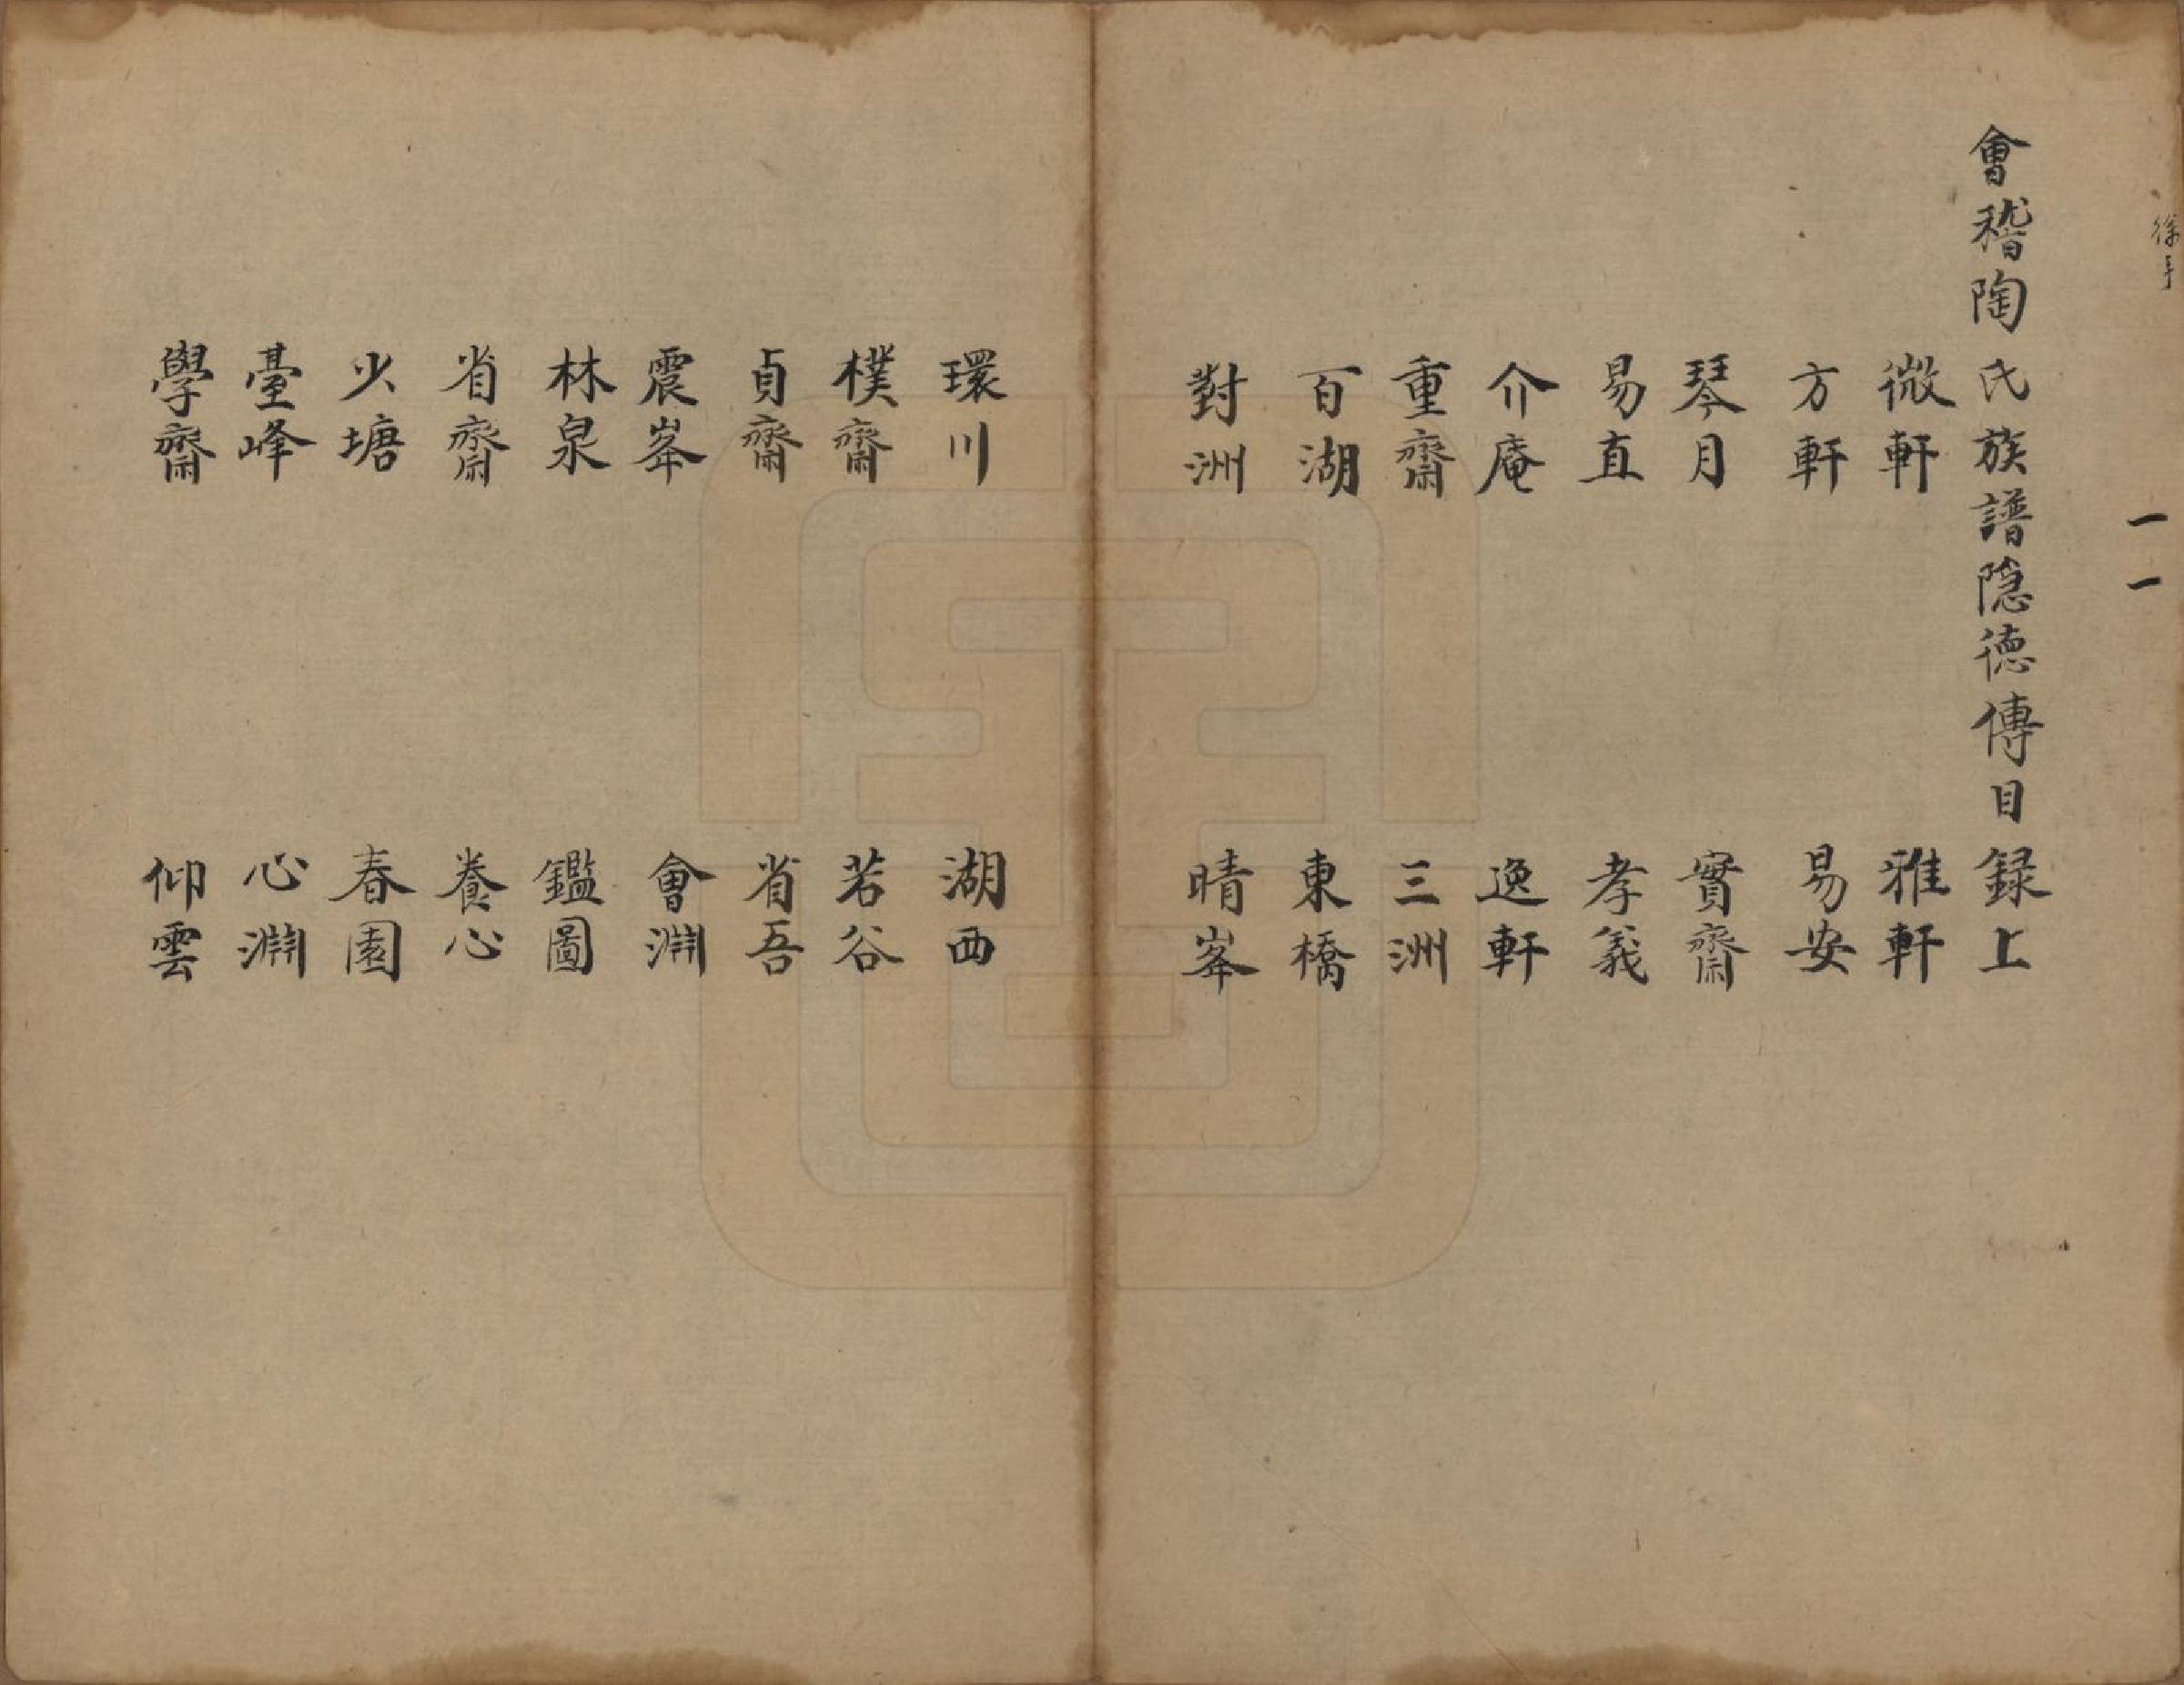 會稽陶氏族譜隐德傳目録上
微軒 雅軒
方軒 易安
琴月 實齋
易直 孝義
介庵 逸軒
重齋 三洲
百湖 東橋
對洲 晴峯
環川 湖西
樸齋 若谷
貞齋 省吾
震峯 會淵
林泉 鑑圖
省齋 養心
少塘 春園
臺峰 心淵
學齋 仰雲